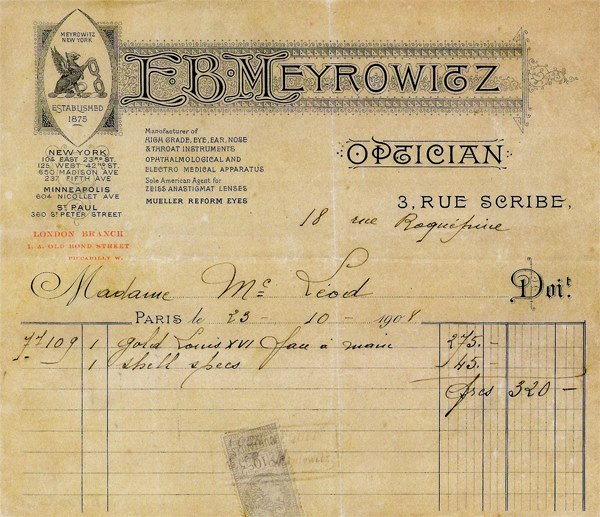 MEYROWITZ
NEW YORK
ESTABLISHED
1875
E.B. MEYROWITZ
OPTICIAN
Manufacturer of
HIGH GRADE, EYE, EAR, NOSE
& THROAT INSTRUMENTS
OPHTHALMOLOGICAL AND
ELECTRO MEDICAL APPARATUS
Sole American Agent for
ZEISS ANASTIGMAT LENSES
MUELLER REFORM EYES
NEW YORK
104 EAST 23RD ST.
125 WEST 42ND ST.
650 MADISON AVE
237 FIFTH AVE
MINNEAPOLIS
604 NICOLLET AVE
ST PAUL
360 ST PETER STREET
LONDON BRANCH
1. A. OLD BOND STREET
PICCADILLY W.
3, RUE SCRIBE,
18 rue Roquépine
Madame Mc Léod Doit.
PARIS le 23 - 10 - 1908
109 1 gold Louis XVI face à main 275.-
1 shell specs 45.-
frcs 320 -